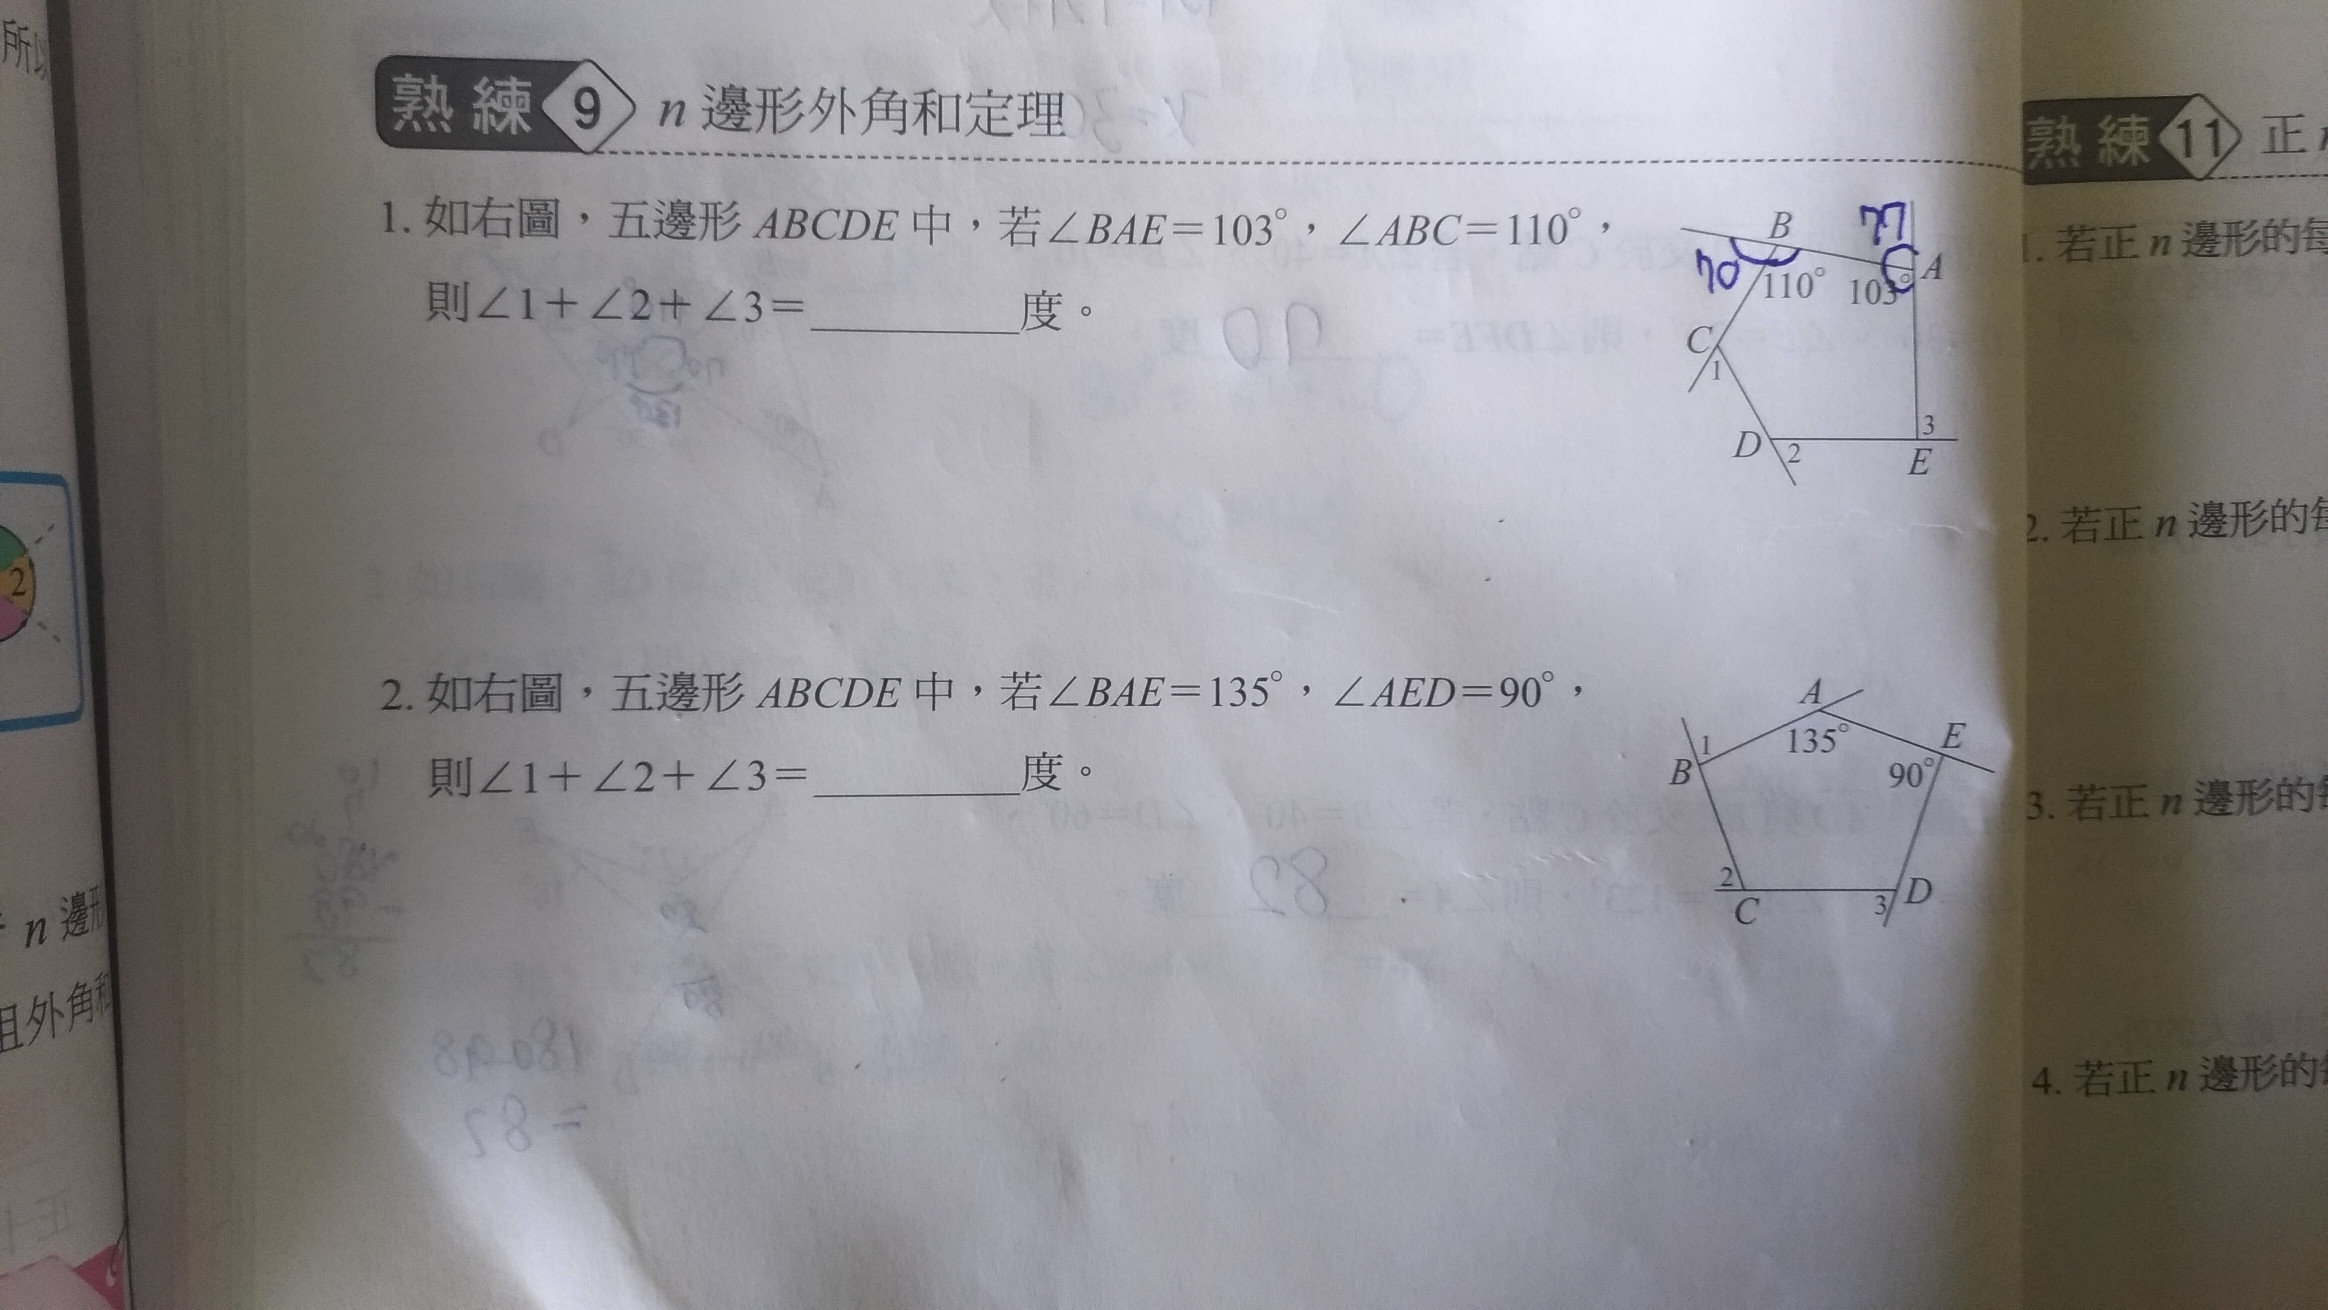 所以
熟練 9 n 邊形外角和定理
1. 如右圖，五邊形 ABCDE 中，若∠BAE＝103°，∠ABC＝110°，
則∠1＋∠2＋∠3＝________度。
B 77
70 110° 103° A
C
1
D 2 3
E
2. 如右圖，五邊形 ABCDE 中，若∠BAE＝135°，∠AED＝90°，
則∠1＋∠2＋∠3＝________度。
A
1 135° E
B 90°
2 D
C 3
2
n 邊形
且外角和
熟練 11 正
1. 若正 n 邊形的每
2. 若正 n 邊形的每
3. 若正 n 邊形的每
4. 若正 n 邊形的每